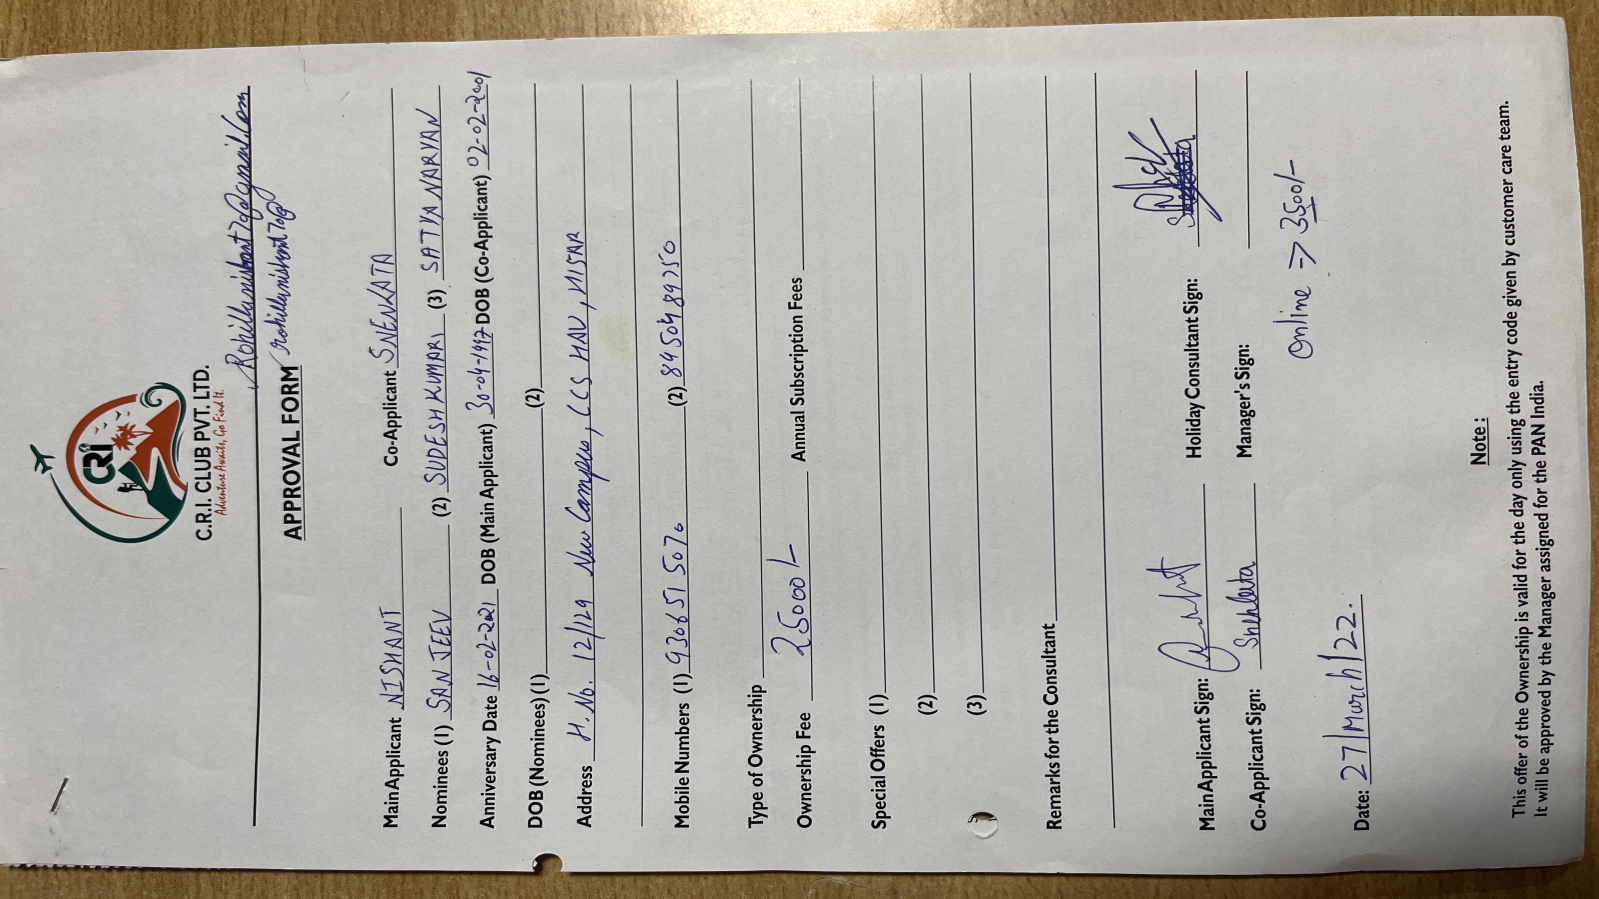 CRI
C.R.I. CLUB PVT. LTD.
Adventure Awaits, Go Find It.
Rohillanishant70@gmail.com
APPROVAL FORM rohillanishant70@
Main Applicant NISHANT Co-Applicant SNEHLATA
Nominees (1) SANJEEV (2) SUDESH KUMARI (3) SATYA NARYAN
Anniversary Date 16-02-2021 DOB (Main Applicant) 30-04-1997 DOB (Co-Applicant) 02-02-2001
DOB (Nominees) (1) (2)
Address H. No. 12/129 New Campus, CCS HAU, HISAR
Mobile Numbers (1) 9306515070 (2) 8950489250
Type of Ownership
Ownership Fee 25000/- Annual Subscription Fees
Special Offers (1)
(2)
(3)
Remarks for the Consultant
Main Applicant Sign: Holiday Consultant Sign:
Co-Applicant Sign: Snehlata Manager's Sign:
Online => 3500/-
Date: 27/March/22.
Note :
This offer of the Ownership is valid for the day only using the entry code given by customer care team.
It will be approved by the Manager assigned for the PAN India.